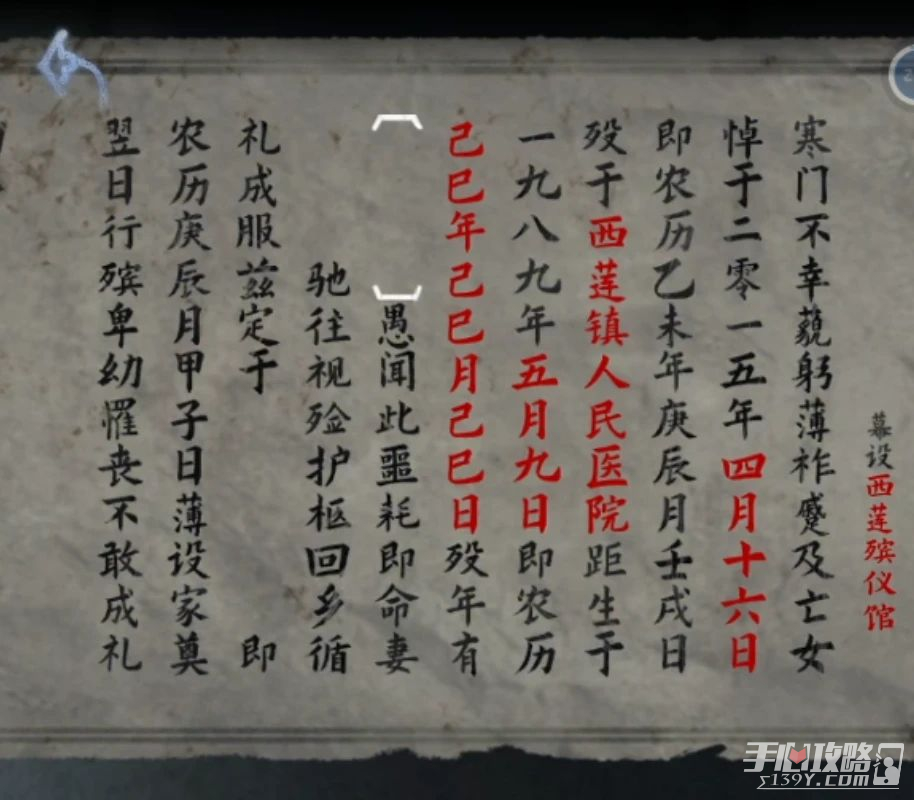 幕设西莲殡仪馆
寒门不幸藐躬薄祚蹙及亡女
悼于二零一五年四月十六日
即农历乙未年庚辰月壬戌日
殁于西莲镇人民医院距生于
一九八九年五月九日即农历
己巳年己巳月己巳日殁年有
愚闻此噩耗即命妻
驰往视殓护柩回乡循
礼成服兹定于 即
农历庚辰月甲子日薄设家奠
翌日行殡卑幼罹丧不敢成礼
手心攻略
139Y.COM